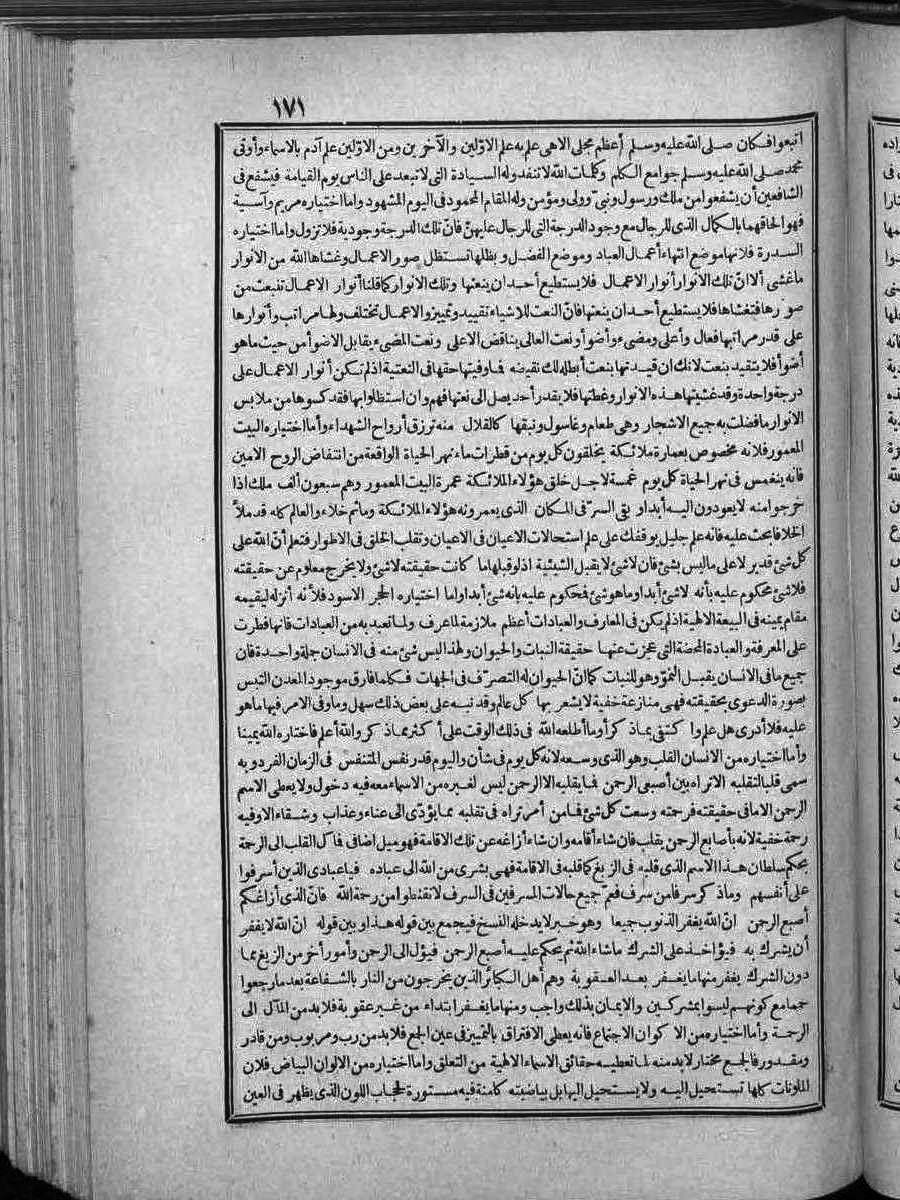 ١٧١
اتبعوا فكان صلى الله عليه وسلم أعظم مجلى الاهى علم به علم الاوّلين والآخرين ومن الاوّلين علم آدم بالاسماء وأوتى
محمد صلى الله عليه وسلم جوامع الكلم وكلمات الله لا تنفد وله السيادة التى لا تبعد على الناس يوم القيامة فيشفع فى
الشافعين أن يشفعوا من ملك ورسول ونبىّ وولى ومؤمن وله المقام المحمود فى اليوم المشهود واما اختياره مريم وآسية
فهو الحاقهما بالكمال الذى للرجال مع وجود الدرجة التى للرجال عليهنّ فانّ تلك الدرجة وجودية فلا تزول واما اختياره
السدرة فلانها موضع انتهاء أعمال العباد وموضع الفصل وبظلها تستظل صور الاعمال وغشاها الله من الأنوار
ما غشى ألا انّ تلك الأنوار أنوار الاعمال فلا يستطيع أحد ان ينعتها وتلك الانوار كما قلنا أنوار الاعمال تنبعث من
صورها فتغشاها فلا يستطيع أحد ان ينعتها فانّ النعت للاشياء تقييد وتمييز والاعمال تختلف ولها مراتب وأنوارها
على قدر مراتبها فعال وأعلى ومضىء وأضوأ ونعت العالى يناقض الاعلى ونعت المضىء يقابل الاضوأ من حيث ما هو
أضوأ فلا يتقيد بنعت لانك ان قيدتها بنعت أبطله لك نقيضه فما وفيتها حقها فى النعتية اذ لم تكن أنوار الاعمال على
درجة واحدة وقد غشيتها هذه الانوار وغطتها فلا يقدر أحد يصل الى نعتها فهم وان استظلوا بها فقد كسوها من ملابس
الانوار ما فضلت به جميع الاشجار وهى طعام وغاسول ونبقها كالقلال منه ترزق أرواح الشهداء وأما اختياره البيت
المعمور فلانه مخصوص بعمارة ملائكة يخلقون كل يوم من قطرات ماء نهر الحياة الواقعة من انتفاض الروح الامين
فانه ينغمس فى نهر الحياة كل يوم غمسة لاجل خلق هؤلاء الملائكة عمرة البيت المعمور وهم سبعون ألف ملك اذا
خرجوا منه لا يعودون اليه أبدا وبقى السرّ فى المكان الذى يعمرونه هؤلاء الملائكة وما ثم خلاء والعالم كله قد ملأ
الخلا فابحث عليه فانه علم جليل يوقفك على علم استحالات الاعيان فى الاعيان وتقلب الخلق فى الاطوار فتعلم أنّ الله على
كل شئ قدير لا على ما ليس بشئ فان لا شئ لا يقبل الشيئية اذ لو قبلها ما كانت حقيقته لا شئ ولا يخرج معلوم عن حقيقته
فلا شئ محكوم عليه بأنه لا شئ أبدا وما هو شئ فمحكوم عليه بانه شئ أبدا واما اختياره الحجر الاسود فلأنه أنزله ليقيمه
مقام يمينه فى البيعة الالهية اذ لم يكن فى المعارف والعبادات أعظم ملازمة لما عرف ولما تعبد به من العبادات فانها فطرت
على المعرفة والعبادة المحضة التى عجزت عنها حقيقة النبات والحيوان ولهذا ليس شئ منه فى الانسان جملة واحدة فان
جميع ما فى الانسان يقبل النموّ وهو للنبات كما انّ الحيوان له التصرّف فى الجهات فكلما فارق موجود المعدن التبس
بصورة الدعوى بحقيقته فهى منازعة خفية لا يشعر بها كل عالم وقد نبه على بعض ذلك سهل وما وفى الامر فيها ما هو
عليه فلا أدرى هل علم وا كتفى بما ذكر أو ما أطلعه الله فى ذلك الوقت على أكثر مما ذكر والله أعلم فاختاره الله يمينا
وأما اختياره من الانسان القلب وهو الذى وسعه لانه كل يوم فى شأن واليوم قدر نفس المتنفس فى الزمان الفرد وبه
سمى قلبا لتقلبه الا تراه بين أصبعى الرحمن فما يقلبه الا الرحمن ليس لغيره من الاسماء معه فيه دخول ولا يعطى الاسم
الرحمن الا ما فى حقيقته فرحمته وسعت كل شئ فما من أمر تراه فى تقلبه مما يؤدّى الى عناء وعذاب وشقاء الا وفيه
رحمة خفية لانه بأصابع الرحمن يقلب فان شاء أقامه وان شاء أزاغه عن تلك الاقامة فهو ميل اضافى فمآل القلب الى الرحمة
بحكم سلطان هذا الاسم الذى قلبه فى الزيغ كما قلبه فى الاقامة فهى بشرى من الله الى عباده فيا عبادى الذين أسرفوا
على أنفسهم وما ذكر سرفا من سرف فعمّ جميع حالات المسرفين فى السرف لا تقنطوا من رحمة الله فانّ الذى أزاغكم
أصبع الرحمن انّ الله يغفر الذنوب جميعا وهو خبر لا يدخله النسخ فيجمع بين قوله هذا وبين قوله انّ الله لا يغفر
أن يشرك به فيؤاخذ على الشرك ما شاء الله ثم يحكم عليه أصبع الرحمن فيؤل الى الرحمن وأمور أخر من الزيغ مما
دون الشرك يغفر منها ما يغفر بعد العقوبة وهم أهل الكبائر الذين يخرجون من النار بالشفاعة بعد ما رجعوا
حمما مع كونهم ليسوا بمشركين والايمان بذلك واجب ومنها ما يغفر ابتداء من غير عقوبة فلا بد من المآل الى
الرحمة وأما اختياره من الاكوان الاجتماع فانه يعطى الافتراق بالتمييز فى عين الجمع فلا بد من رب ومربوب ومن قادر
ومقدور فالجمع مختار لابد منه لما تعطيه حقائق الاسماء الالهية من التعلق واما اختياره من الالوان البياض فلان
الملونات كلها تستحيل اليه ولا يستحيل اليها بل بياضيته كامنة فيه مستورة لحجاب اللون الذى يظهر فى العين